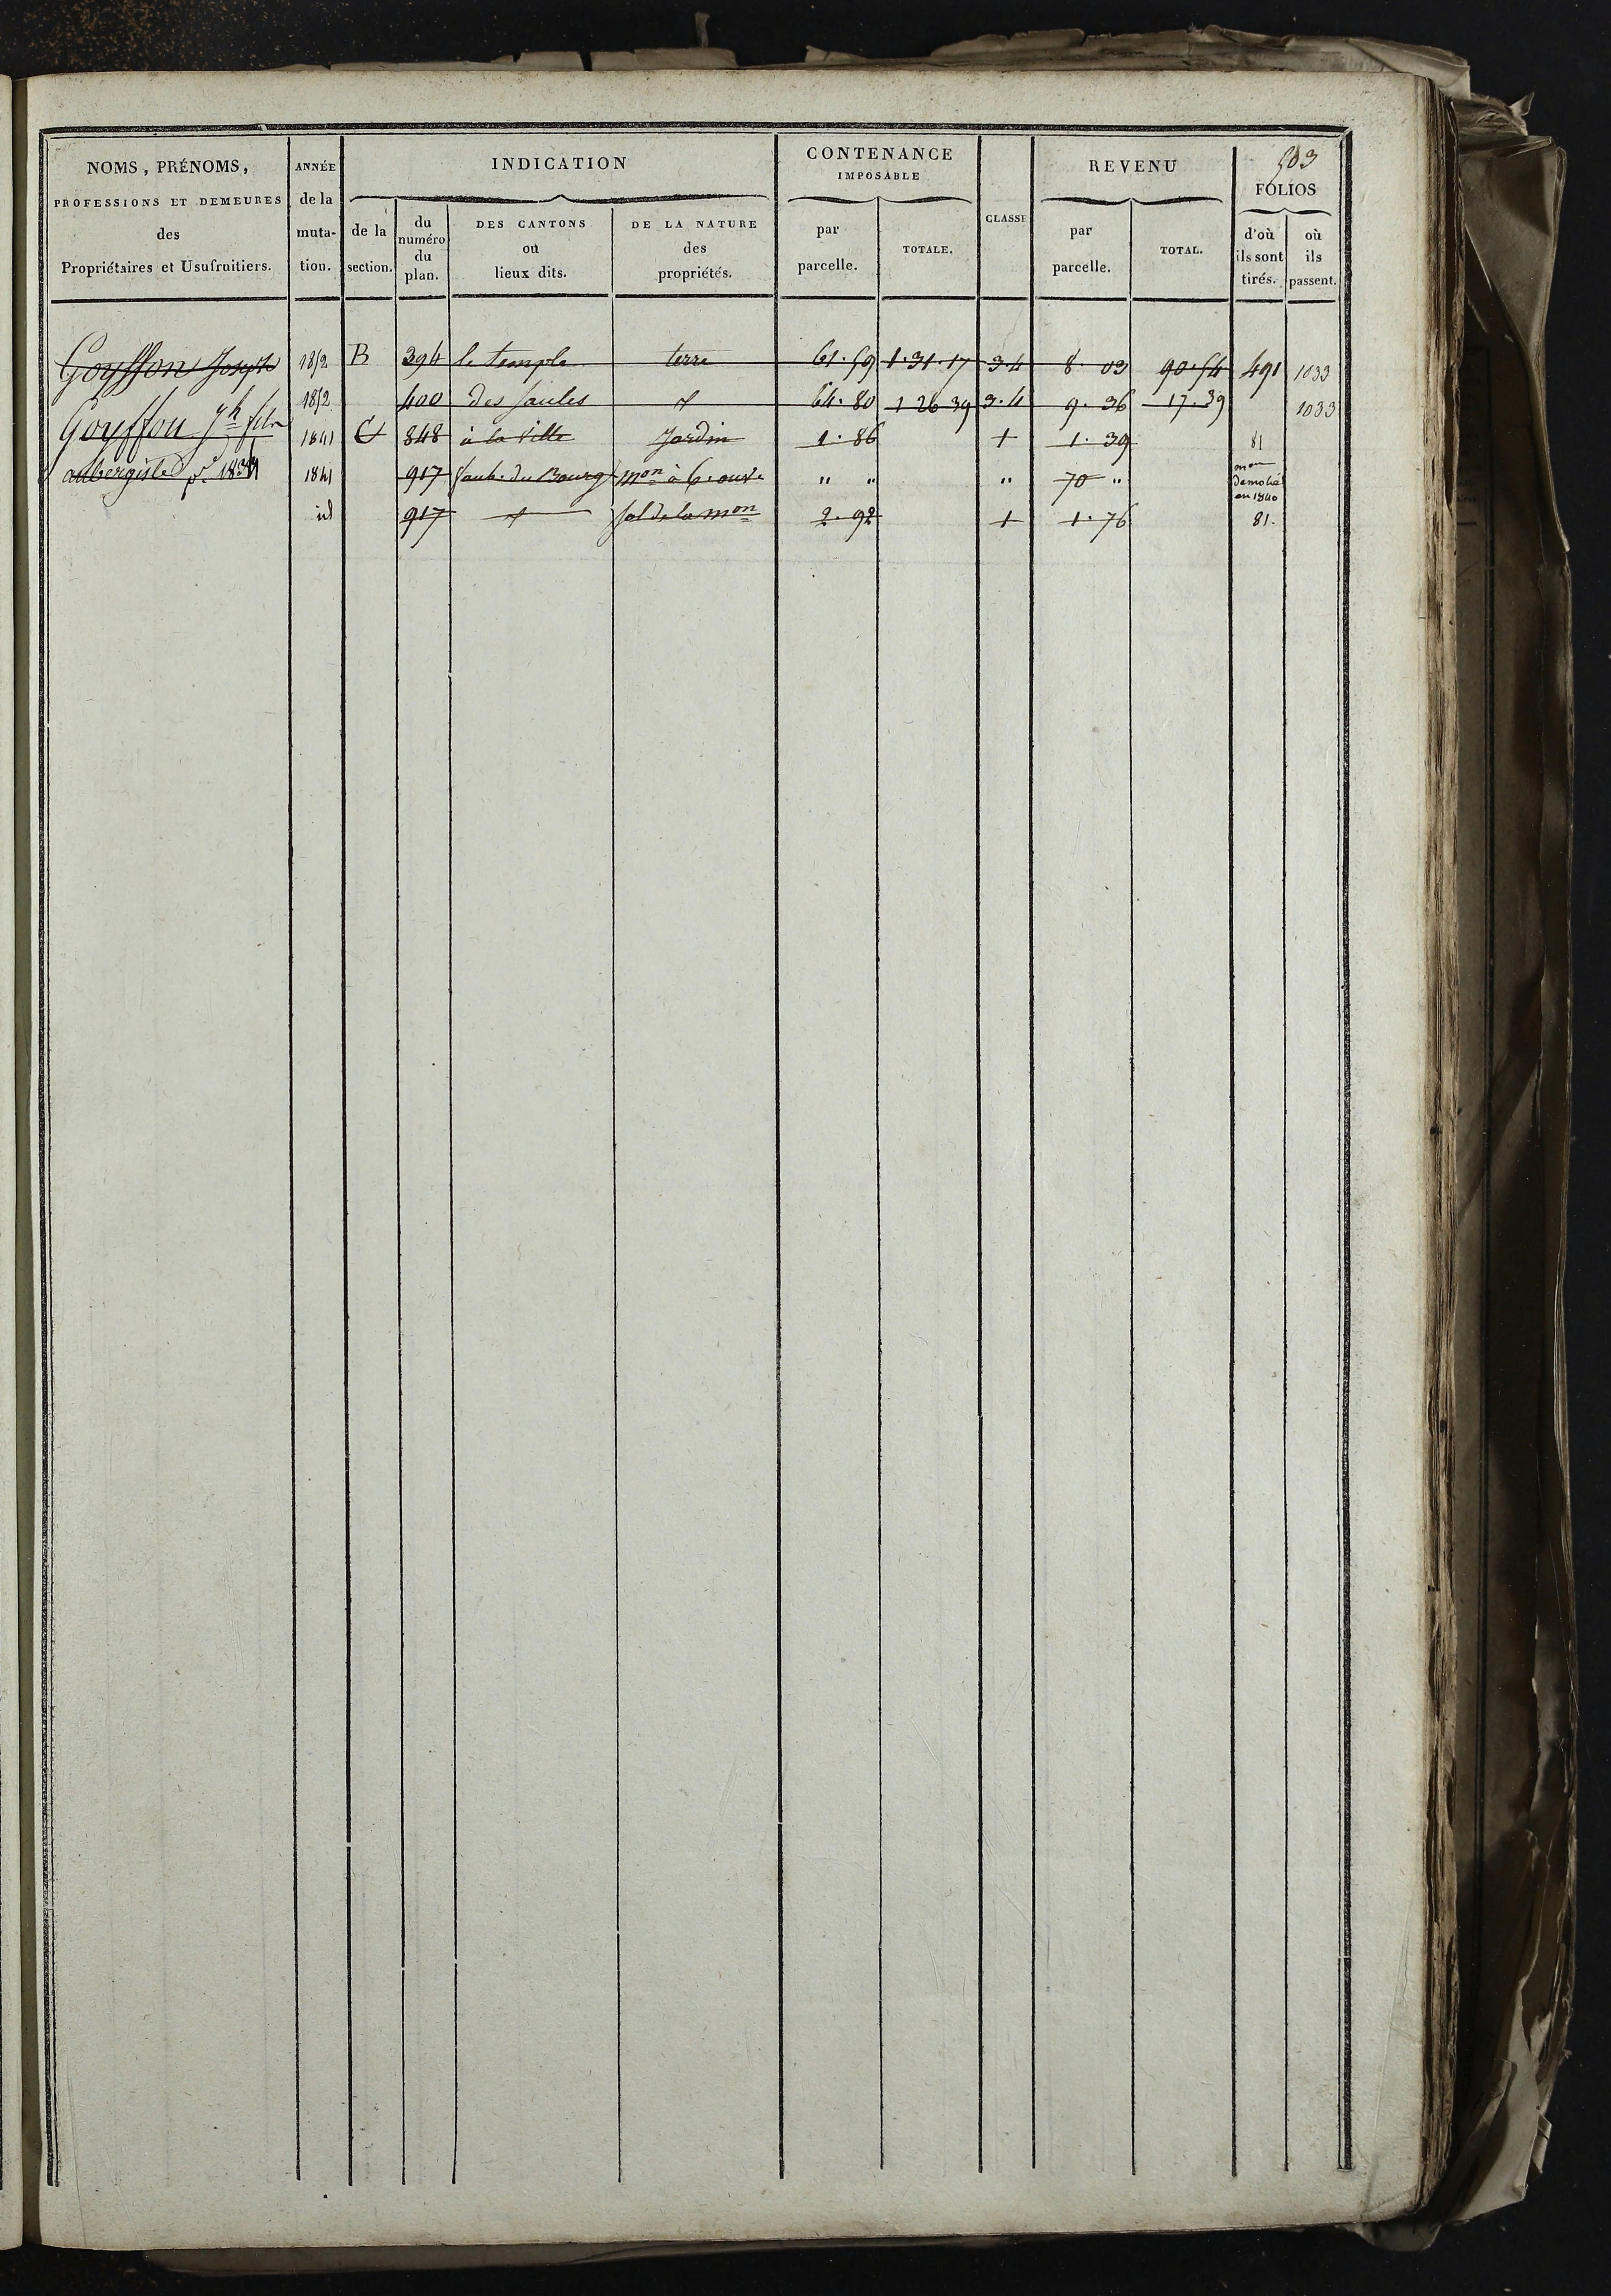 503
NOMS, PRÉNOMS, PROFESSIONS ET DEMEURES des Propriétaires et Usufruitiers.
ANNÉE de la muta- tion.
INDICATION
de la section.
du numéro du plan.
DES CANTONS ou lieux dits.
DE LA NATURE des propriétés.
CONTENANCE IMPOSABLE
par parcelle.
TOTALE.
CLASSE
REVENU
par parcelle.
TOTAL.
FOLIOS
d'où ils sont tirés.
où ils passent.
Goyffon Joseph 1852 B 394 le temple terre 61.59 1.31.17 3.4 8.03 90.54 491 1033
Goyffon Jh fils 1852 400 des saules d 64.80 1 26 39 3.4 9.36 17.39 1033
1841 C 848 à la ville Jardin 1.86 1 1.39 81
aubergiste pr 1841 917 faub. du Bourg mon à 6. ouv. " " " 70 " mon démolie en 1840
id 917 d sol de la mon 2.92 1 1.76 81.